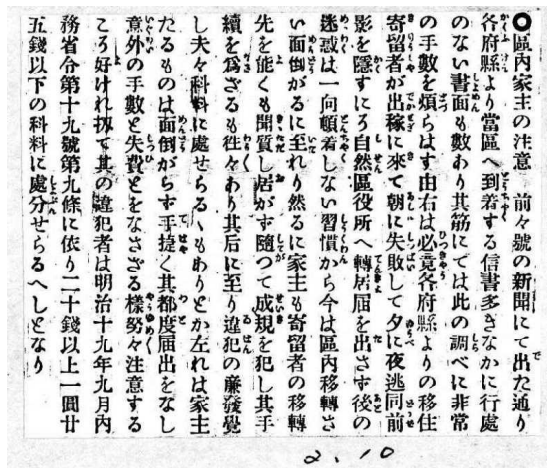 ○區内家主の注意　前々號の新聞にて出た通り
各府縣より當區へ到着する信書多きなかに行處
のない書面も數わり其筋にては此の調べに非常
の手數を煩らはす由右は必竟各府縣よりの移住
寄留者が出稼に來て朝に失敗して夕に夜逃同前
影を隱すにろ自然區役所へ轉居屆を出さす後の
迷惑は一向頓着しない習慣から今は區内移轉さ
い面倒がるに至れり然るに家主も寄留者の移轉
先を能くも聞質し居がす隨つて成規を犯し其手
續を爲ざるも徃々わり其后に至り違犯の廉發覺
し夫々科料に處せらるゝもありとか左れは家主
たるものは面倒がらす手捷く其都度屆出をなし
意外の手數と失費とをなさざる樣努々注意する
ころ好けれ扨て其の違犯者は明治十九年九月内
務省令第十九號第九條に依り二十錢以上一圓廿
五錢以下の科料に處分せらるへしとなり
2.10